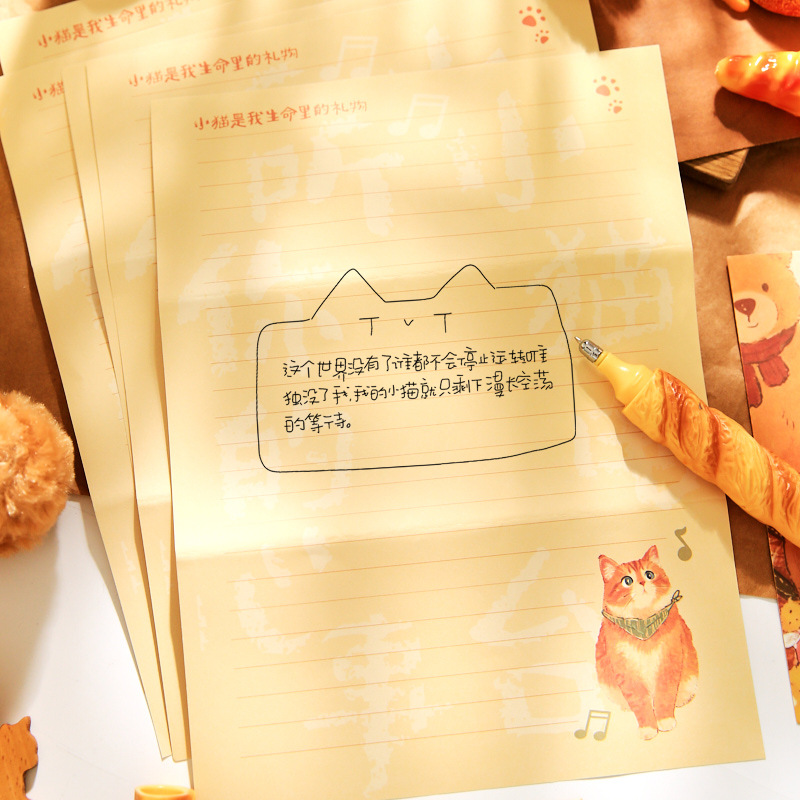 小猫是我生命里的礼物
小猫是我生命里的礼物
小猫是我生命里的礼物
这个世界没有了谁都不会停止运转唯
独没了我,我的小猫就只剩下漫长空荡
的等待。